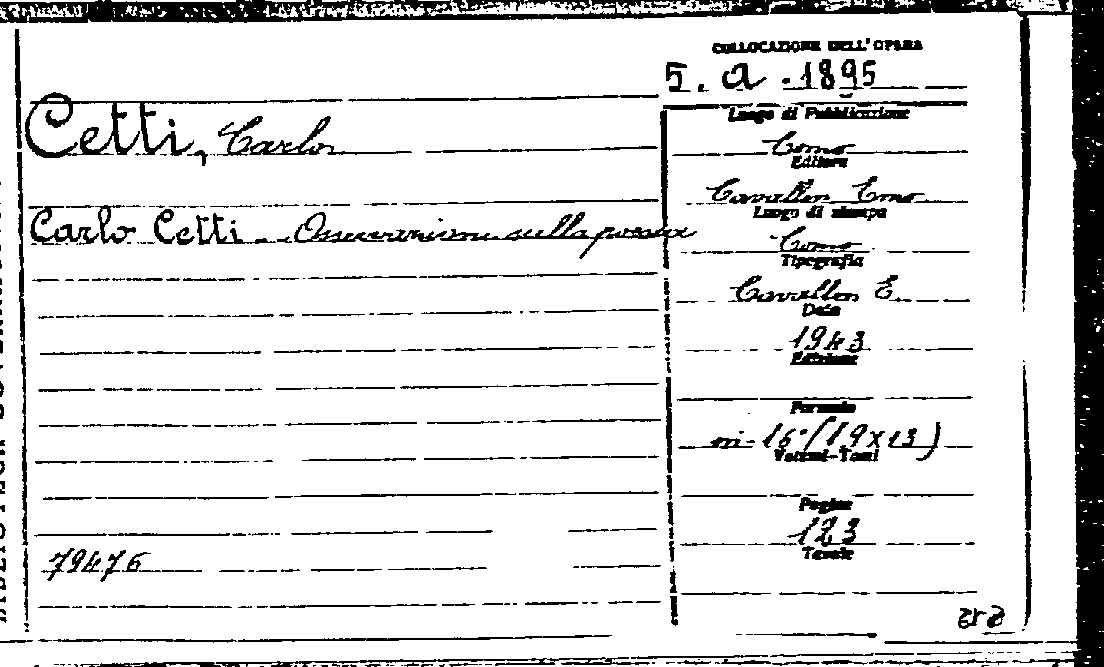 COLLOCAZIONE DELL'OPERA
5. a - 1895
Luogo di Pubblicazione
Cetti, Carlo
Como
Editore
Cavalleri Erno
Luogo di stampa
Carlo Cetti - sulla poesia
Como
Tipografia
Cavalleri E.
Data
1943
Edizione
Formato
in-16° (19x13)
Volumi-Tomi
Pagine
123
Tavole
79476